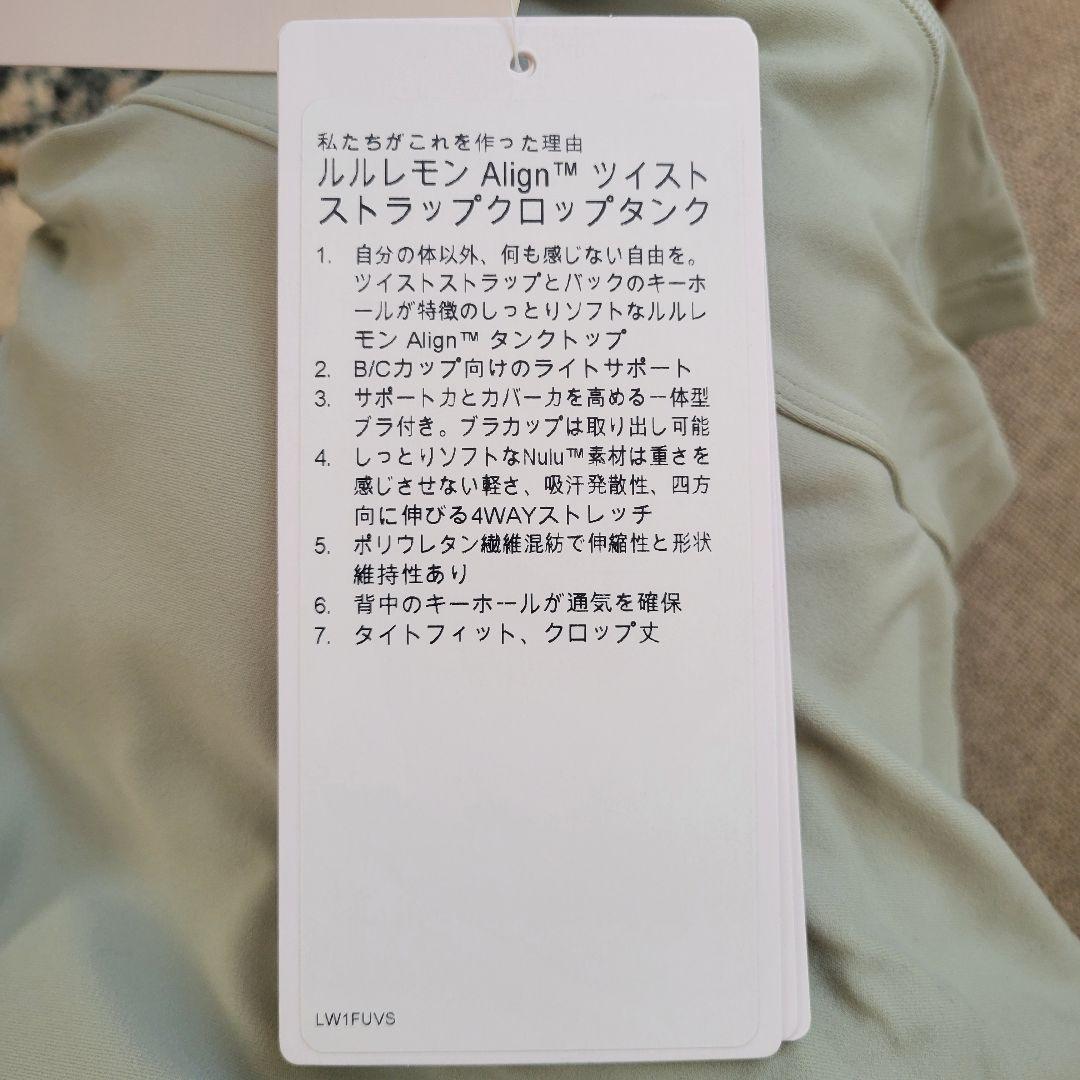 私たちがこれを作った理由
ルルレモン Align™ ツイスト
ストラップクロップタンク
1. 自分の体以外、何も感じない自由を。
ツイストストラップとバックのキーホ
ールが特徴のしっとりソフトなルルレ
モン Align™ タンクトップ
2. B/Cカップ向けのライトサポート
3. サポート力とカバー力を高める一体型
ブラ付き。ブラカップは取り出し可能
4. しっとりソフトなNulu™素材は重さを
感じさせない軽さ、吸汗発散性、四方
向に伸びる4WAYストレッチ
5. ポリウレタン繊維混紡で伸縮性と形状
維持性あり
6. 背中のキーホールが通気を確保
7. タイトフィット、クロップ丈
LW1FUVS